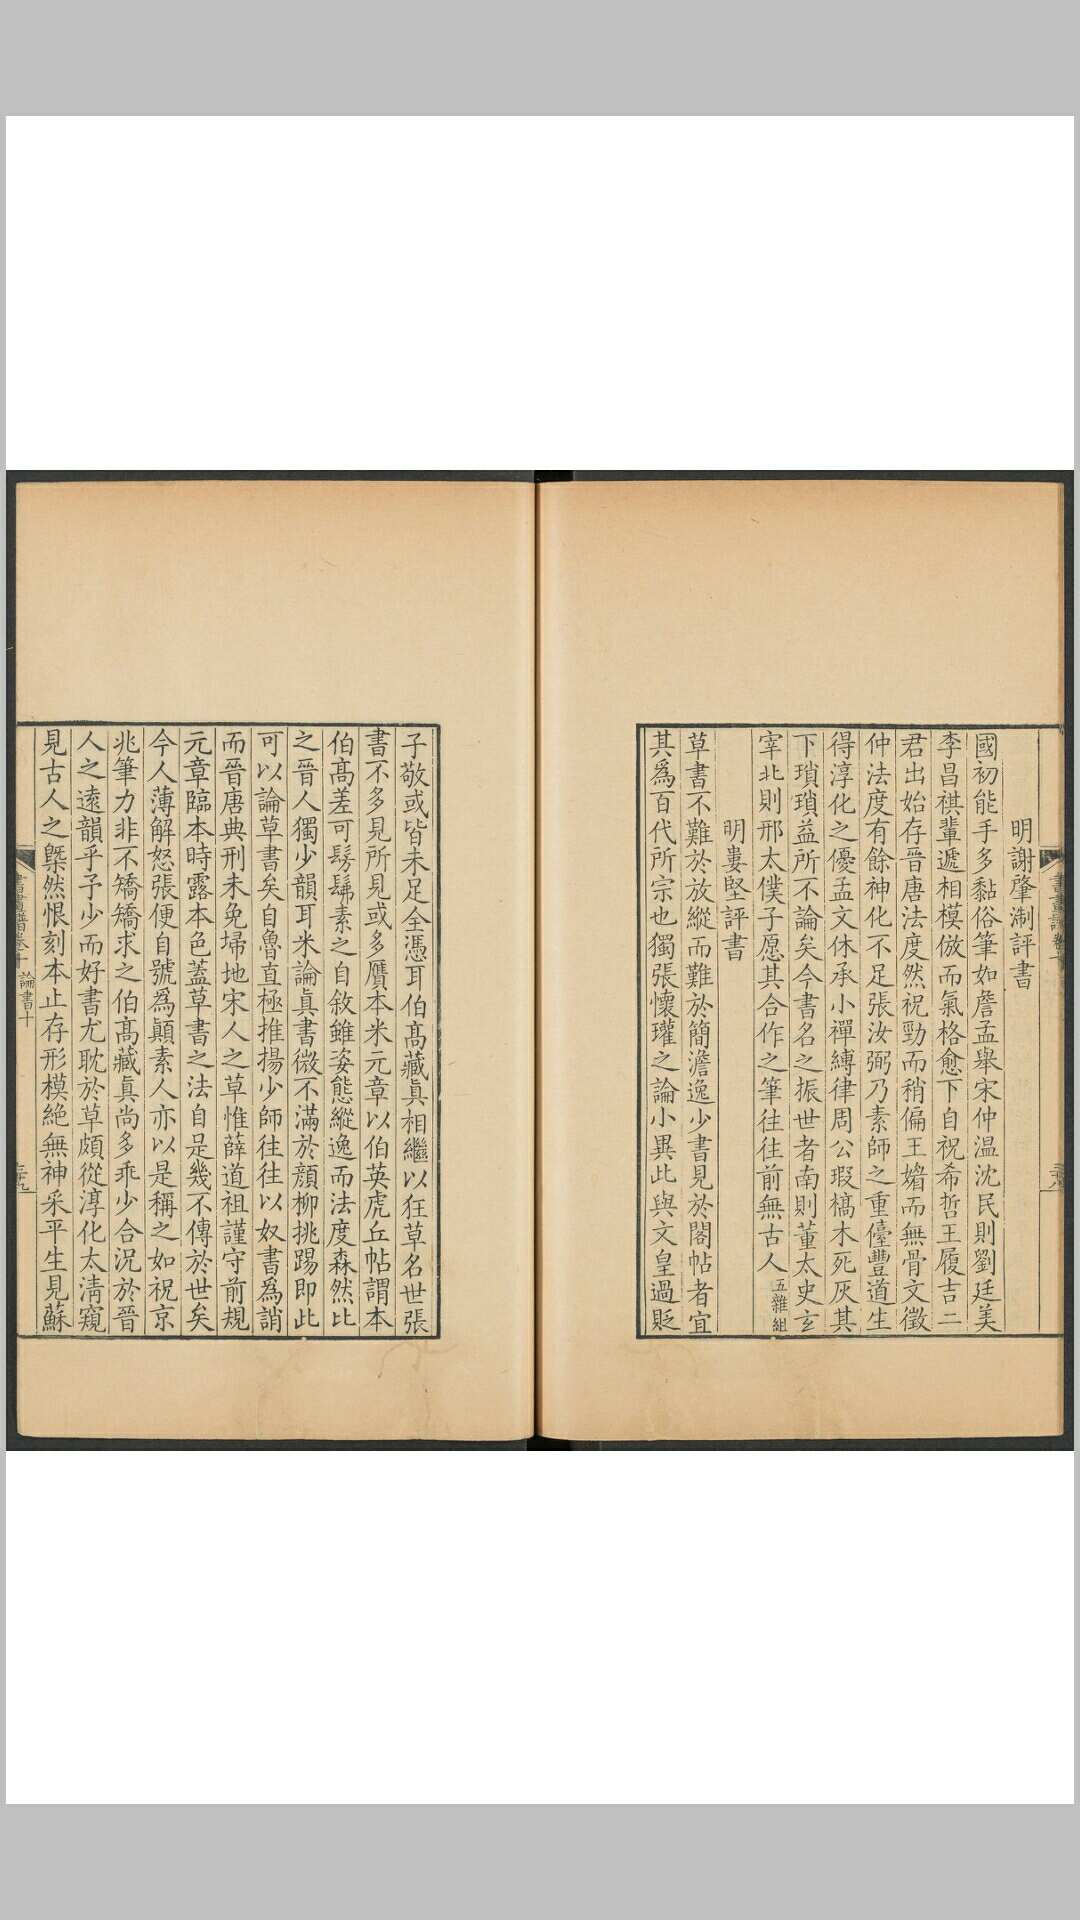 明謝肇淛評書
國初能手多黏俗筆如詹孟舉宋仲温沈民則劉廷美
李昌祺輩遞相模倣而氣格愈下自祝希哲王履吉二
君出始存晉唐法度然祝勁而稍偏王媚而無骨文徵
仲法度有餘神化不足張汝弼乃素師之重儓豐道生
得淳化之優孟文休承小禪縛律周公瑕槁木死灰其
下瑣瑣益所不論矣今書名之振世者南則董太史玄
宰北則邢太僕子愿其合作之筆往往前無古人五雜組
明婁堅評書
草書不難於放縱而難於簡澹逸少書見於閣帖者宜
其爲百代所宗也獨張懷瓘之論小異此與文皇過貶
子敬或皆未足全憑耳伯高藏眞相繼以狂草名世張
書不多見所見或多贋本米元章以伯英虎丘帖謂本
伯高差可髣髴素之自敘雖姿態縱逸而法度森然比
之晉人獨少韻耳米論眞書微不滿於顔柳挑踢即此
可以論草書矣自魯直極推揚少師往往以奴書爲誚
而晉唐典刑未免埽地宋人之草惟薛道祖謹守前規
元章臨本時露本色蓋草書之法自是幾不傳於世矣
今人薄解怒張便自號爲顚素人亦以是稱之如祝京
兆筆力非不矯矯求之伯高藏眞尚多乖少合況於晉
人之遠韻乎予少而好書尤耽於草頗從淳化太淸窺
見古人之槩然恨刻本止存形模絕無神采平生見蘇
書畫譜卷十 論書十
三十九